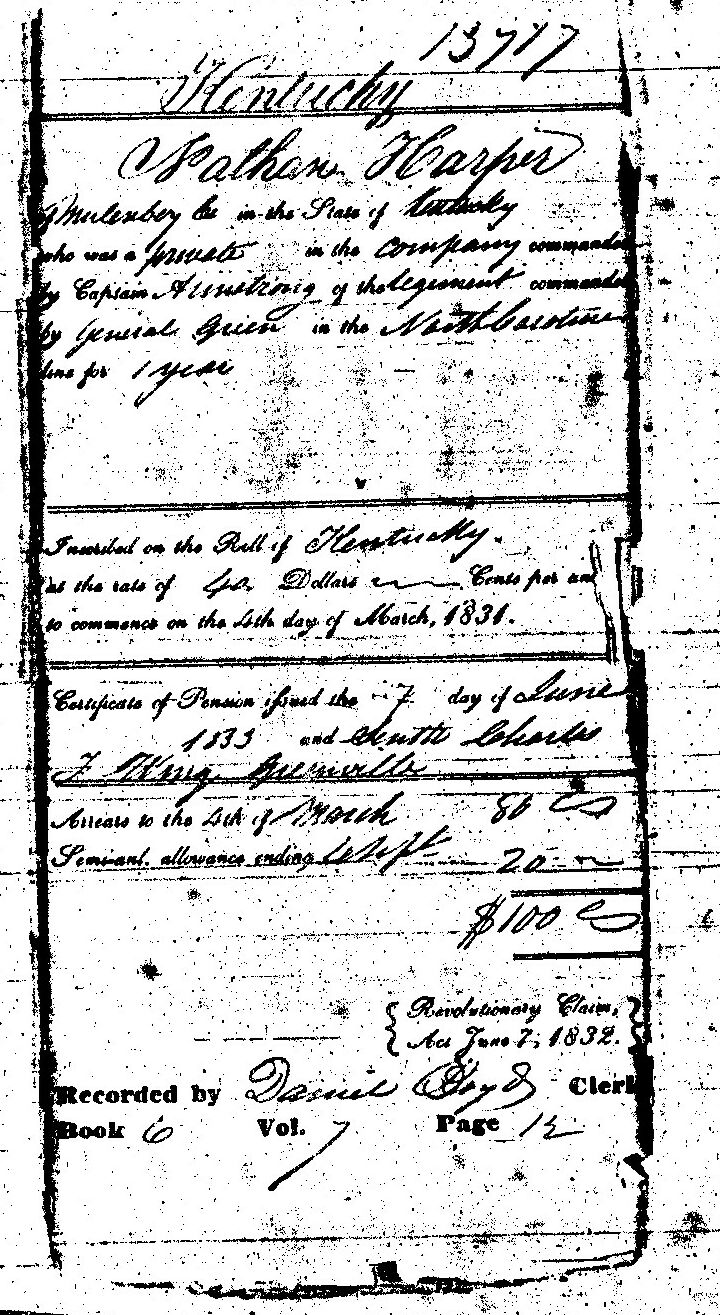 13717
Kentucky
Nathan Harper
of Mulenbey Co in the State of Kentucky
who was a private in the company commanded
by Captain Armstrong of the regement commanded
by General Green in the North Carolina
line for 1 year
Inscribed on the Roll of Kentucky.
at the rate of 40 Dollars Cents per an
to commence on the 4th day of March, 1831.
Certificate of Pension issued the 7 day of June
1833 and Charles
F Wing Grenville
Arrears to the 4th of March 80
Semi-anl. allowance ending Sept 20
$100
Revolutionary Claim,
Act June 7, 1832.
Recorded by Daniel Boyd Clerk
Book 6 Vol. 7 Page 12